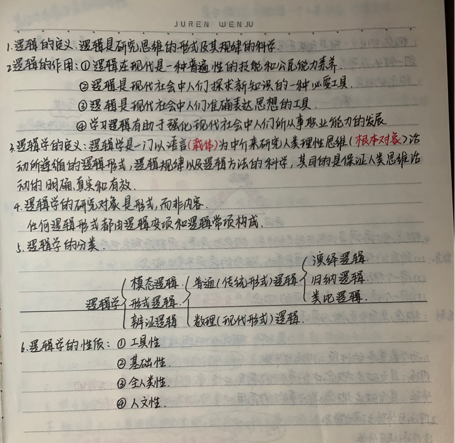 JUREN WENJU
1.逻辑的定义:逻辑是研究思维的形式及其规律的科学
2.逻辑的作用:①逻辑在现代是一种普遍性的技能和公民能力素养
②逻辑是现代社会中人们探求新知识的一种必要工具.
③逻辑是现代社会中人们准确表达思想的工具.
④学习逻辑有助于强化现代社会中人们所从事职业能力的发展
3.逻辑学的定义:逻辑学是一门以语言(载体)为中介来研究人类理性思维(根本对象)活
动所遵循的逻辑形式,逻辑规律以及逻辑方法的科学,其目的是保证人类思维活
动的明确,真实和有效.
4.逻辑学的研究对象是形式,而非内容.
任何逻辑形式都由逻辑变项和逻辑常项构成.
5.逻辑学的分类.
演绎逻辑.
模态逻辑 普通(传统形式)逻辑 归纳逻辑.
逻辑学 形式逻辑 类比逻辑.
辩证逻辑 数理(现代形式)逻辑.
6.逻辑学的性质:①工具性
②基础性.
③全人类性.
④人文性.